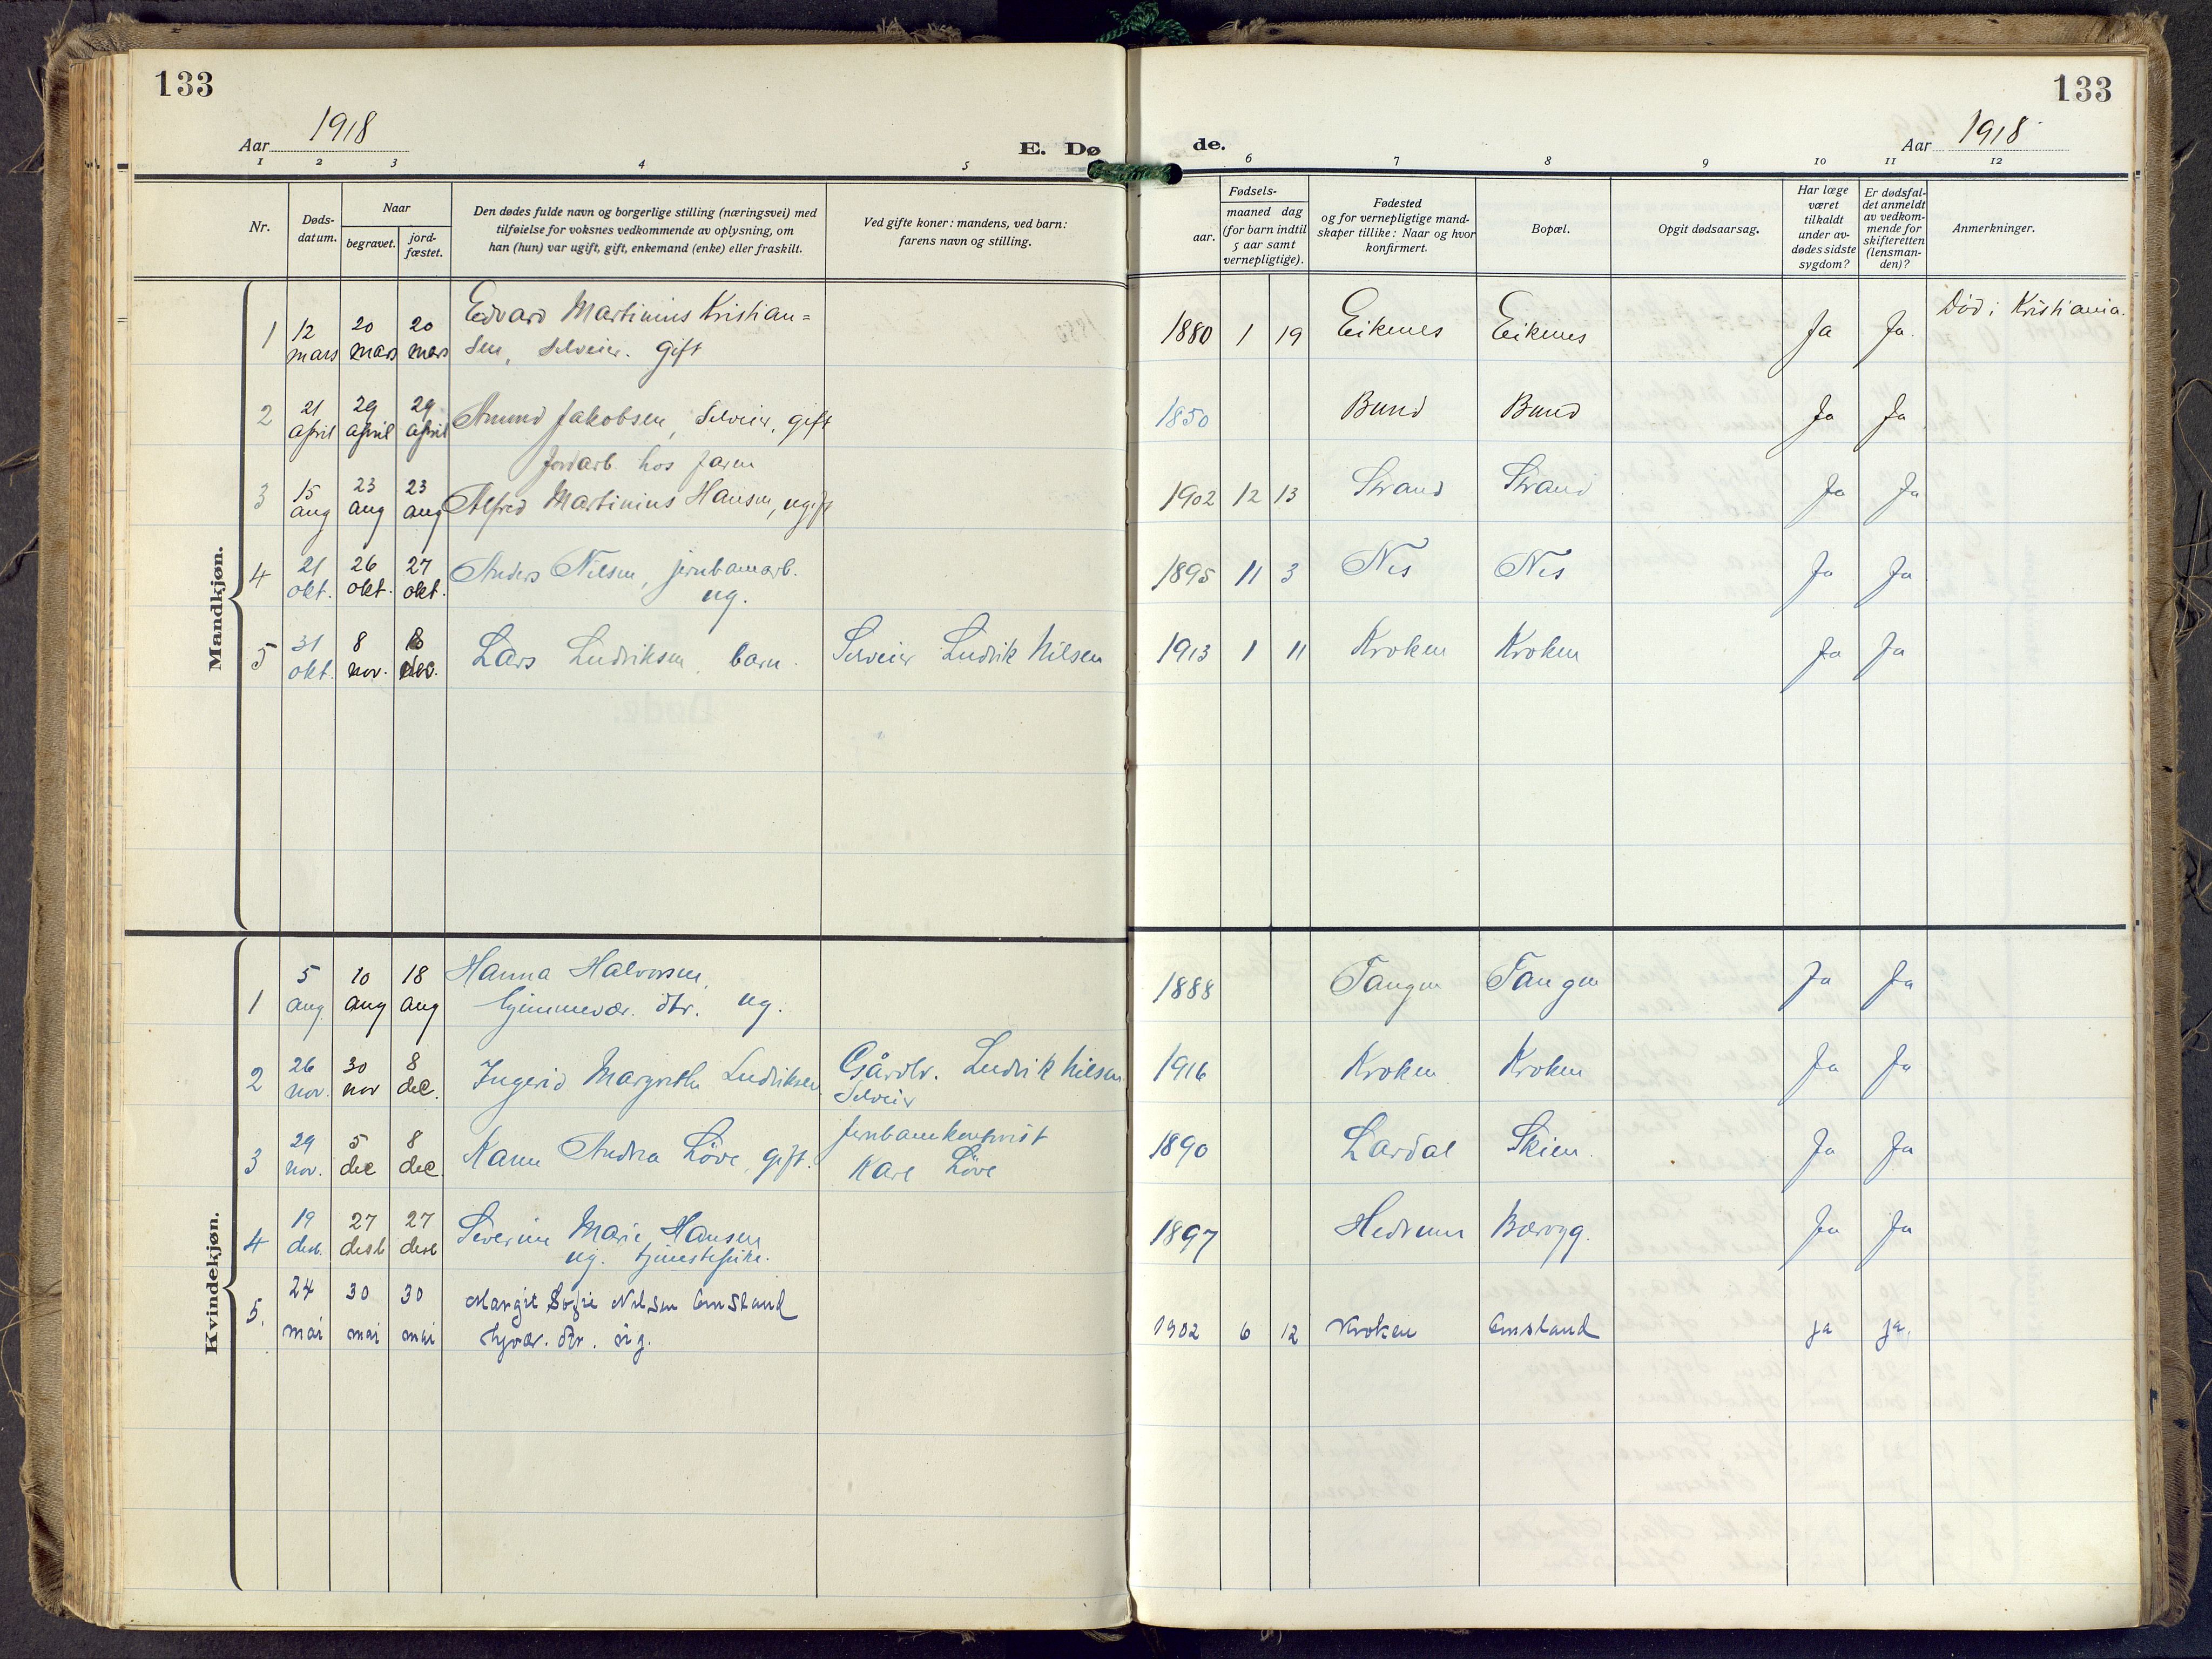 133
133
Aar 1918
E. Dø
de.
Aar 1918
1 2 3 4 5
6 7 8 9 10 11 12
Nr.
Døds-
datum.
Naar
begravet.
jord-
fæstet.
Den dødes fulde navn og borgerlige stilling (næringsvei) med
tilføielse for voksnes vedkommende av oplysning, om
han (hun) var ugift, gift, enkemand (enke) eller fraskilt.
Ved gifte koner: mandens, ved barn:
farens navn og stilling.
Fødsels-
aar.
maaned dag
(for barn indtil
5 aar samt
vernepligtige).
Fødested
og for vernepligtige mand-
skaper tillike: Naar og hvor
konfirmert.
Bopæl.
Opgit dødsaarsag.
Har læge
været
tilkaldt
under av-
dødes sidste
sygdom?
Er dødsfal-
det anmeldt
av vedkom-
mende for
skifteretten
(lensman-
den)?
Anmerkninger.
Mandkjøn.
1 12 mars 20 mars 20 mars Edvard Martinius Kristian=
sen, selveier. gift 1880 1 19 Eikenes Eikenes Ja Ja. Død i Kristiania.
2 21 april 29 april 29 april Amund Jakobsen, Selveier, gift 1850 Bund Bund Ja Ja
Jordarb. hos faren
3 15 aug 23 aug 23 aug Alfred Martinius Hansen, ugift 1902 12 13 Strand Strand Ja Ja
4 21 okt. 26 okt. 27 okt. Anders Nilsen, jernbanearb.
ug. 1895 11 3 Nes Nes Ja Ja
5 31 okt. 8 nov. 8 Lars Ludviksen barn. Selveier Ludvik Nilsen 1913 1 11 Kroken Kroken Ja Ja
Kvindekjøn.
1 5 aug. 10 aug 18 aug Hanna Halvorsen,
hjemmevær. dtr. ug. 1888 Tangen Tangen Ja Ja
2 26 nov. 30 nov 8 dec. Ingerid Margrethe Ludviksen Gårdbr. Ludvik Nilsen
Selveier 1916 Kroken Kroken Ja Ja
3 29 nov. 5 dec 8 dec. Karen Andrea Löve, gift. Karl Löve 1890 Lardal Skien. Ja Ja
4 19 desb. 27 desb 27 desb Severine Marie Hansen
ug. tjenestepike. 1897 Hedrum Ja Ja
5. 24 mai 30 mai 30 mai Margit Sofie Nilsen Omsland
hjvær. dtr. ug. 1902 6 12 Kroken Omsland ja ja.